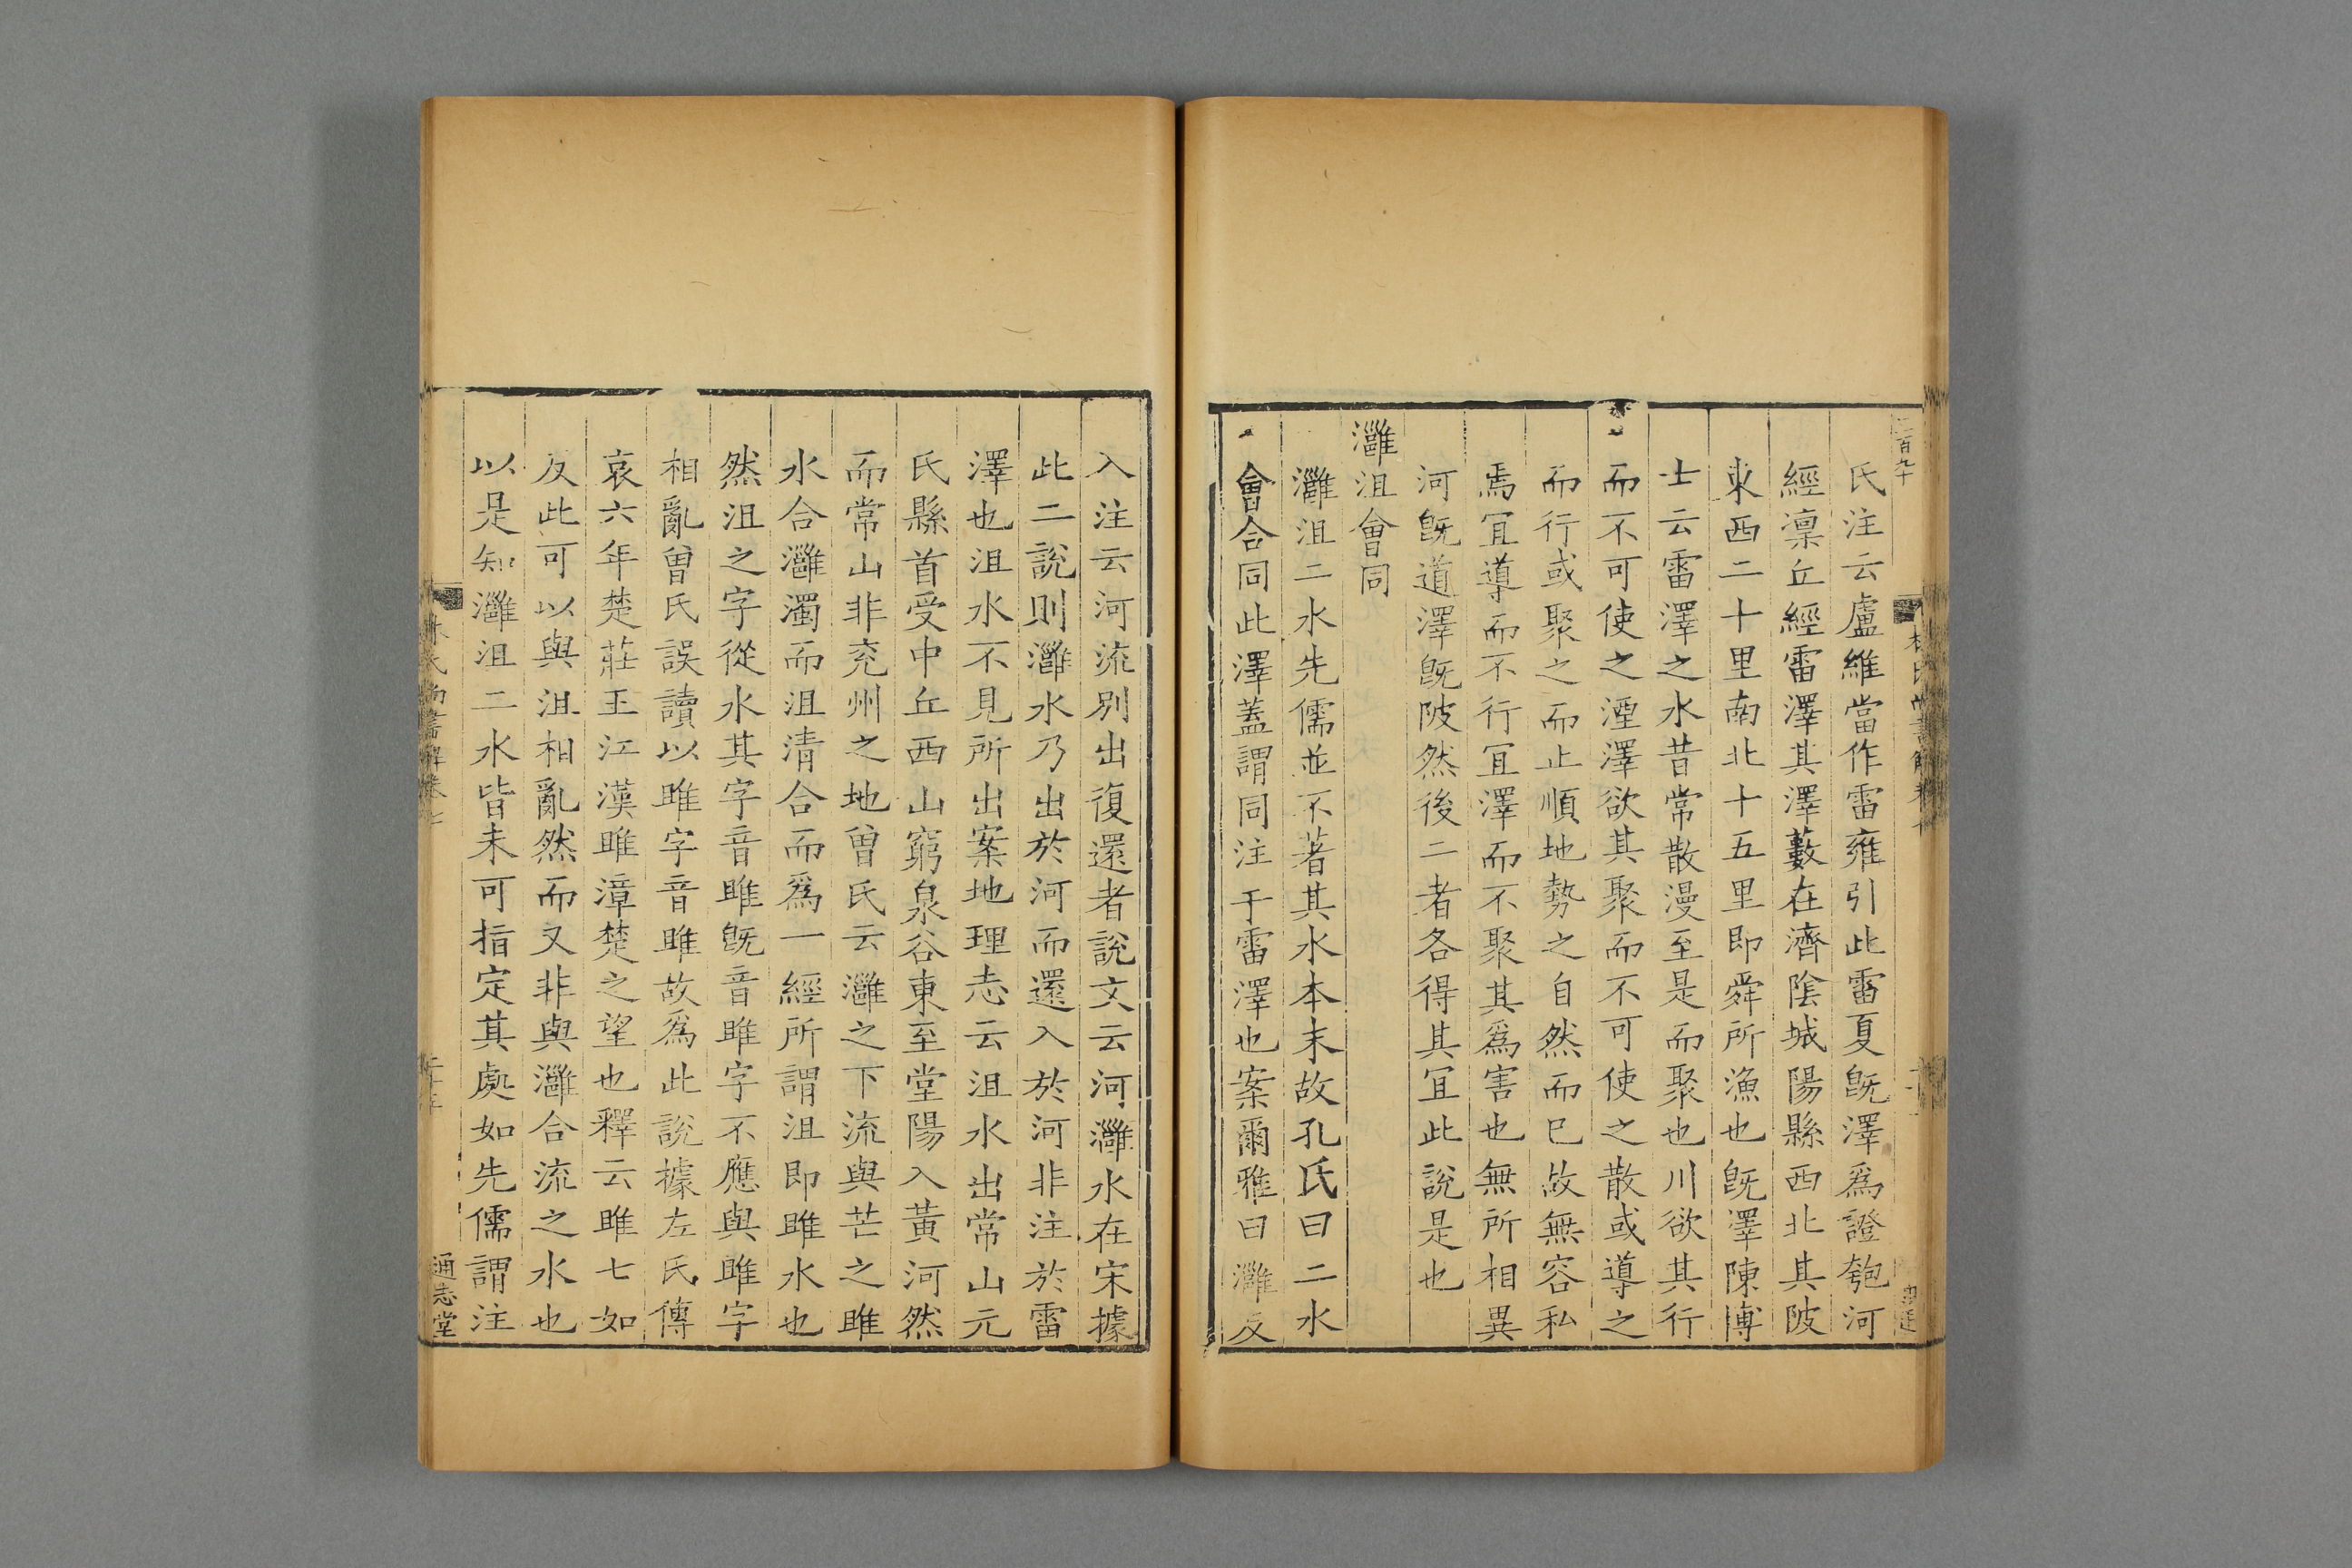 氏注云盧維當作雷雍引此雷夏旣澤爲證瓠河
經凜丘經雷澤其澤藪在濟陰城陽縣西北其陂
東西二十里南北十五里即舜所漁也旣澤陳博
士云雷澤之水昔常散漫至是而聚也川欲其行
而不可使之湮澤欲其聚而不可使之散或導之
而行或聚之而止順地勢之自然而已故無容私
焉宜導而不行宜澤而不聚其爲害也無所相異
河旣道澤旣陂然後二者各得其宜此說是也
灉沮會同
灉沮二水先儒並不著其水本末故孔氏曰二水
會合同此澤蓋謂同注于雷澤也案爾雅曰灉反
入注云河流別出復還者說文云河灉水在宋據
此二說則灉水乃出於河而還入於河非注於雷
澤也沮水不見所出案地理志云沮水出常山元
氏縣首受中丘西山窮泉谷東至堂陽入黃河然
而常山非兖州之地曾氏云灉之下流與芒之雎
水合灉濁而沮清合而爲一經所謂沮即雎水也
然沮之字從水其字音雎旣音雎字不應與雎字
相亂曾氏誤讀以雎字音雎故爲此說據左氏傳
哀六年楚莊王江漢雎漳楚之望也釋云雎七如
反此可以與沮相亂然而又非與灉合流之水也
以是知灉沮二水皆未可指定其處如先儒謂注
林氏尚書解卷七
通志堂